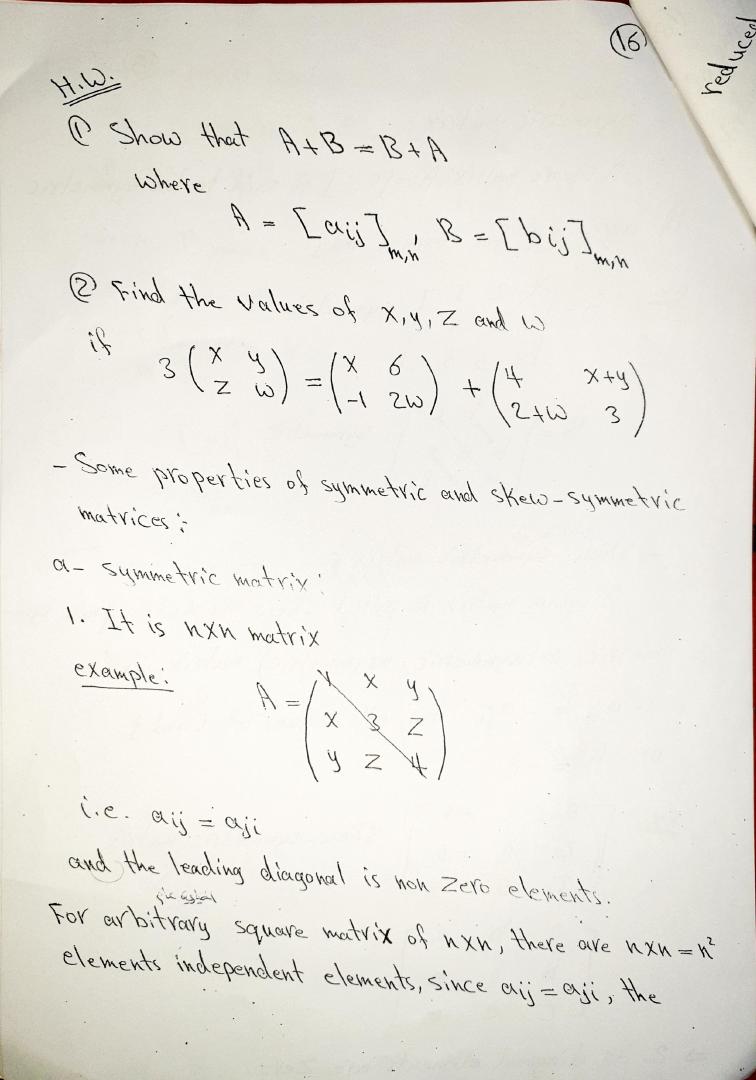 16
reduced
H.W.
① Show that A+B = B+A
where
A = [aij]m,n, B = [bij]m,n
② Find the values of x, y, z and w
if
3 (x y) = (x 6) + (4 x+y)
(z w) (-1 2w) (2+w 3)
- Some properties of symmetric and skew-symmetric
matrices:
a- symmetric matrix:
1. It is nxn matrix
example:
x y
A = x 3 z
y z 4
i.e. aij = aji
and the leading diagonal is non zero elements.
For arbitrary square matrix of nxn, there are nxn = n²
elements independent elements, since aij = aji, the